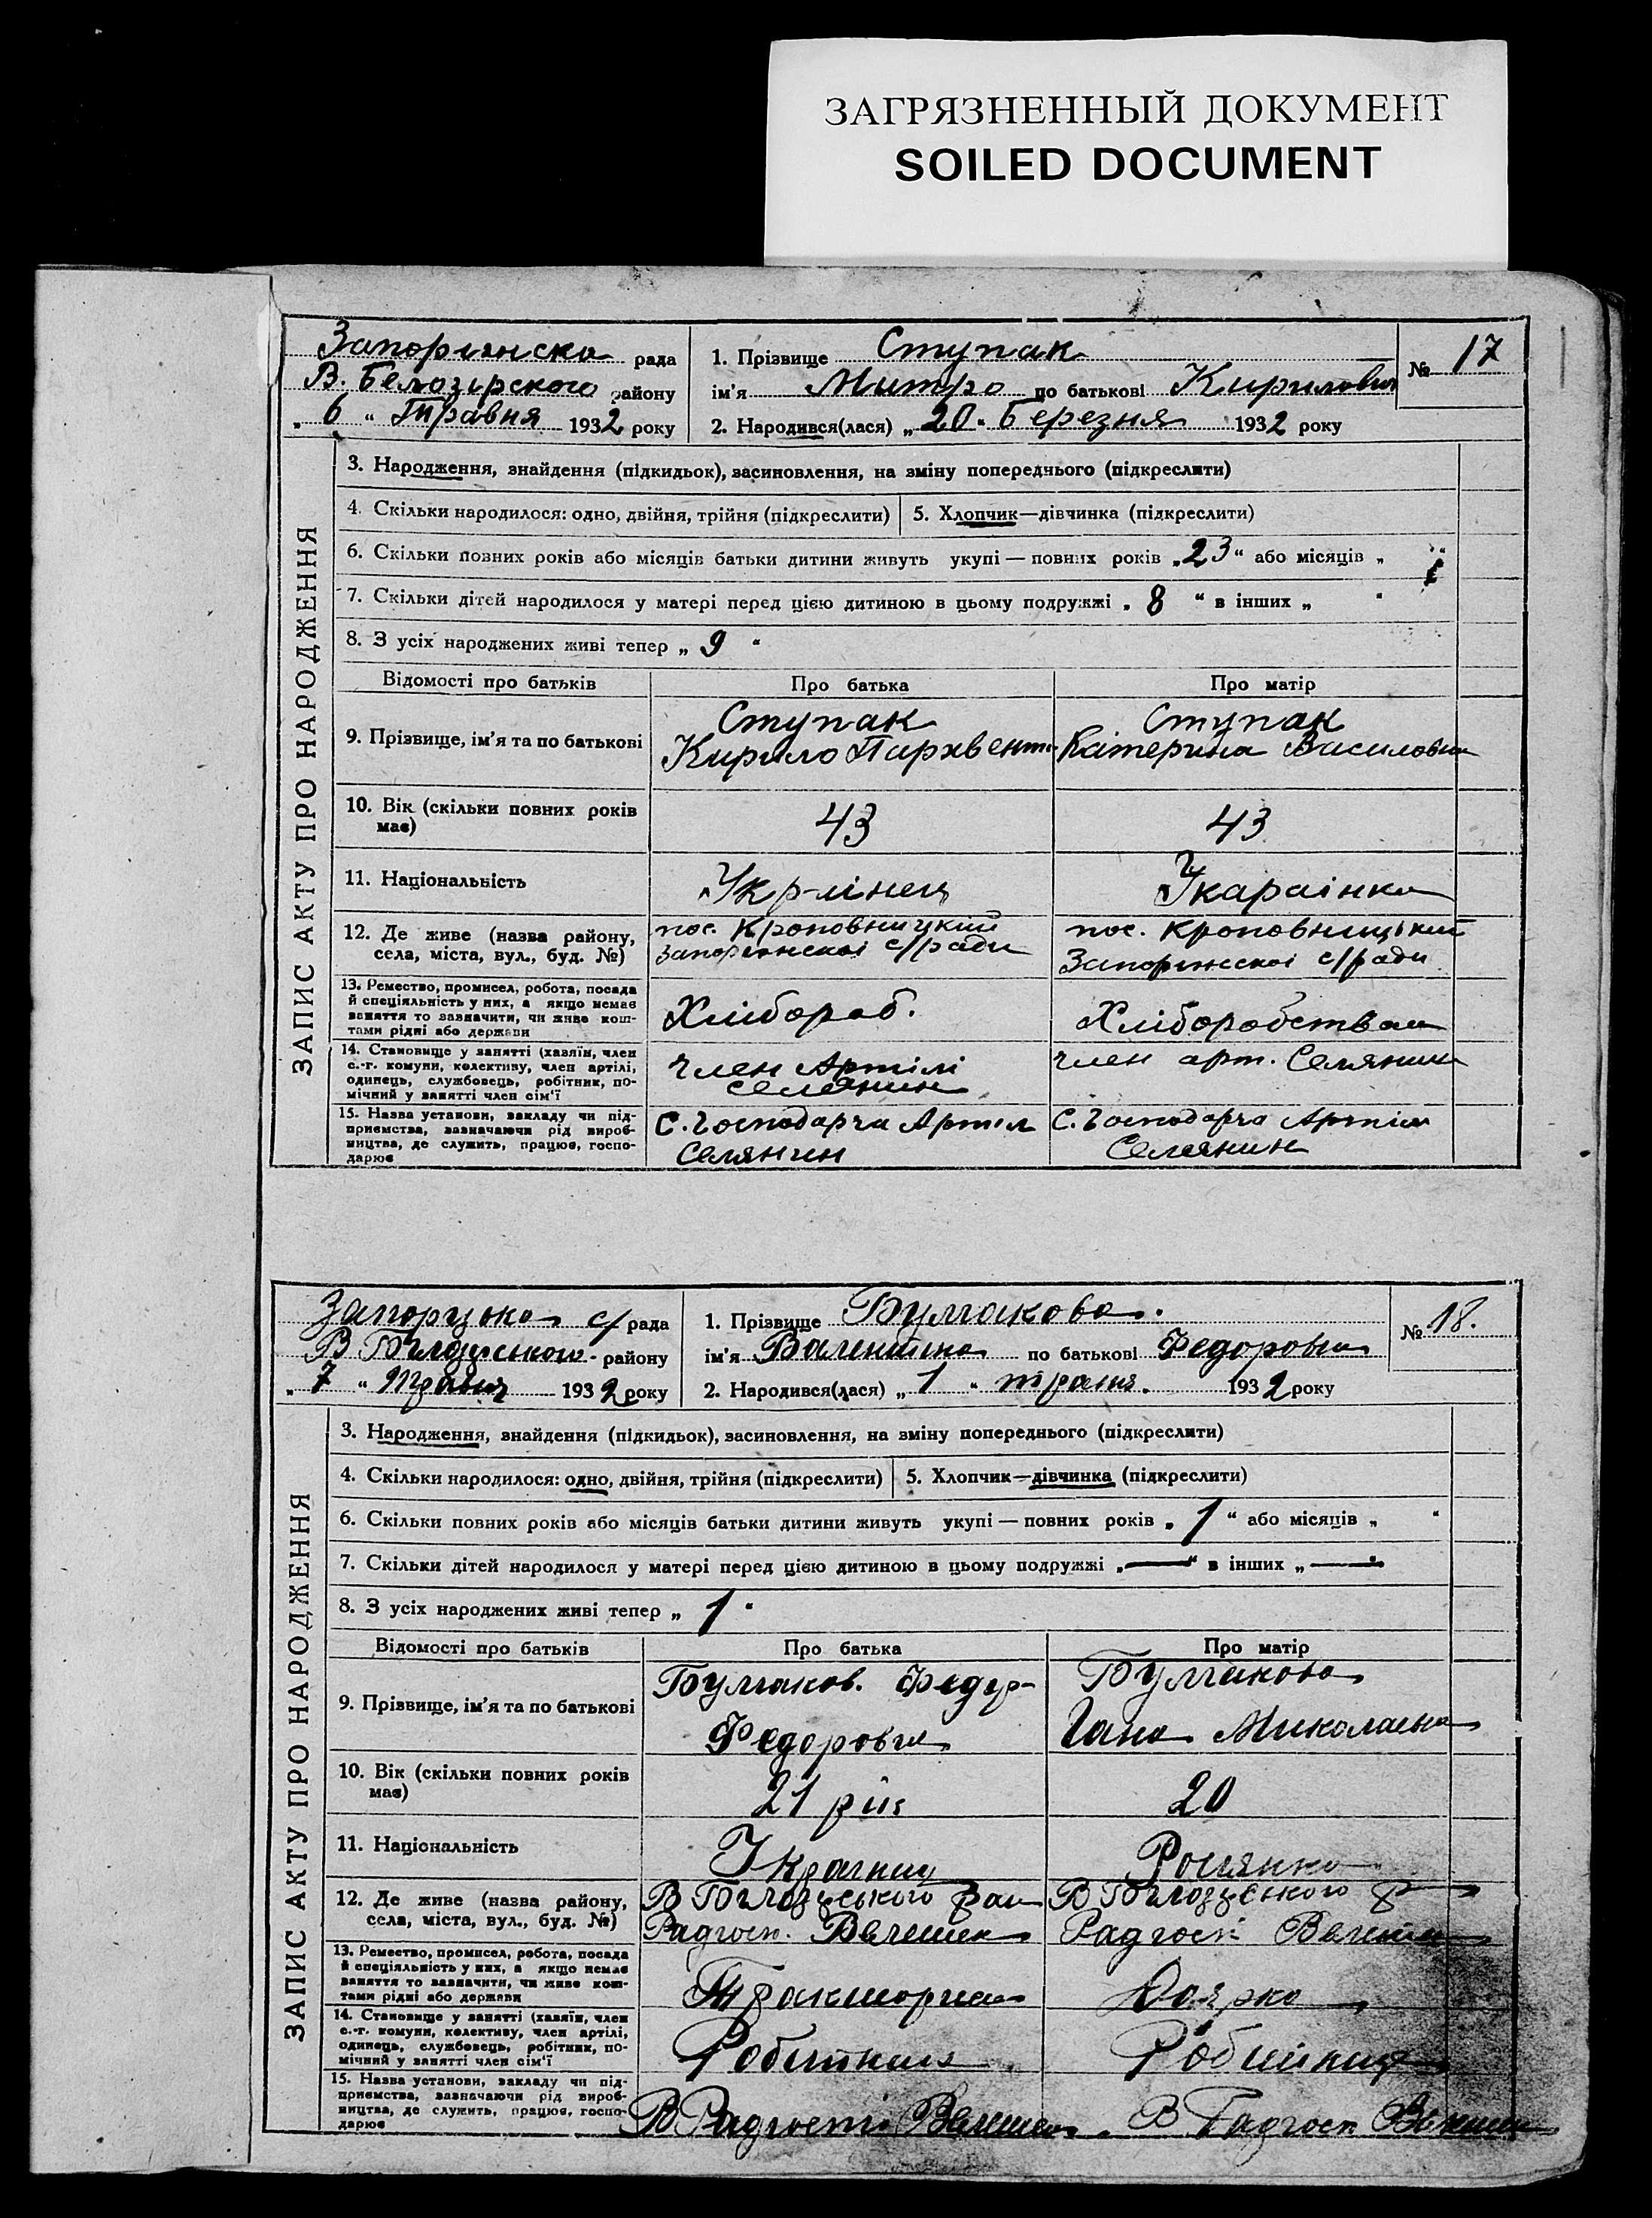 ЗАГРЯЗНЕННЫЙ ДОКУМЕНТ
SOILED DOCUMENT
ЗАПИС АКТУ ПРО НАРОДЖЕННЯ
рада
В. Белозірского району
„ 6 “ Травня 1932 року
1. Прізвище Ступак
ім'я Митро по батькові Кирилович
№ 17
2. Народився(лася) „ 20 “ Березня 1932 року
3. Народження, знайдення (підкидьок), засиновлення, на зміну попереднього (підкреслити)
4. Скільки народилося: одно, двійня, трійня (підкреслити)
5. Хлопчик—дівчинка (підкреслити)
6. Скільки повних років або місяців батьки дитини живуть укупі — повних років „ 23 “ або місяців „ “
7. Скільки дітей народилося у матері перед цією дитиною в цьому подружжі „ 8 “ в інших „ “
8. З усіх народжених живі тепер „ 9 “
Відомості про батьків
Про батька
Про матір
9. Прізвище, ім'я та по батькові
Ступак
Кирило
Ступак
Катерина Василовна
10. Вік (скільки повних років має)
43
43
11. Національність
Укр-аінец
Украінка
12. Де живе (назва району, села, міста, вул., буд. №)
пос. Кроповницкий
с/ради
пос. Кроповницький
с/ради
13. Ремество, промисел, робота, посада й спеціяльність у них, а якщо немає заняття то зазначити, чи живе коштами рідні або держави
Хлібороб.
14. Становище у занятті (хазяїн, член с.-г. комуни, колективу, член артілі, одинець, службовець, робітник, помічний у занятті член сім'ї
член Артілі
Селянин
член арт. Селянин
15. Назва установи, закладу чи підприємства, зазначаючи рід виробництва, де служить, працює, господарює
С. Господарча Артіл
Селянин
С. Господарча Артіл
Селянин
ЗАПИС АКТУ ПРО НАРОДЖЕННЯ
Запорізька с/рада
району
„ 7 “ травня 1932 року
1. Прізвище Булгакова.
ім'я Валентина по батькові Федоровна
№ 18.
2. Народився(лася) „ 1 “ травня. 1932 року
3. Народження, знайдення (підкидьок), засиновлення, на зміну попереднього (підкреслити)
4. Скільки народилося: одно, двійня, трійня (підкреслити)
5. Хлопчик—дівчинка (підкреслити)
6. Скільки повних років або місяців батьки дитини живуть укупі — повних років „ 1 “ або місяців „ “
7. Скільки дітей народилося у матері перед цією дитиною в цьому подружжі „ — “ в інших „ — “
8. З усіх народжених живі тепер „ 1 “
Відомості про батьків
Про батька
Про матір
9. Прізвище, ім'я та по батькові
Булгаков. Федір
Федорович
Булгакова
Гана Миколаєвна
10. Вік (скільки повних років має)
21 рік
20
11. Національність
Українец
Росіянка
12. Де живе (назва району, села, міста, вул., буд. №)
Радгосп.
Радгосп
13. Ремество, промисел, робота, посада й спеціяльність у них, а якщо немає заняття то зазначити, чи живе коштами рідні або держави
Тракторист
Доярка
14. Становище у занятті (хазяїн, член с.-г. комуни, колективу, член артілі, одинець, службовець, робітник, помічний у занятті член сім'ї
Робітник
Робітниця
15. Назва установи, закладу чи підприємства, зазначаючи рід виробництва, де служить, працює, господарює
В Радгоспі
В Радгосп